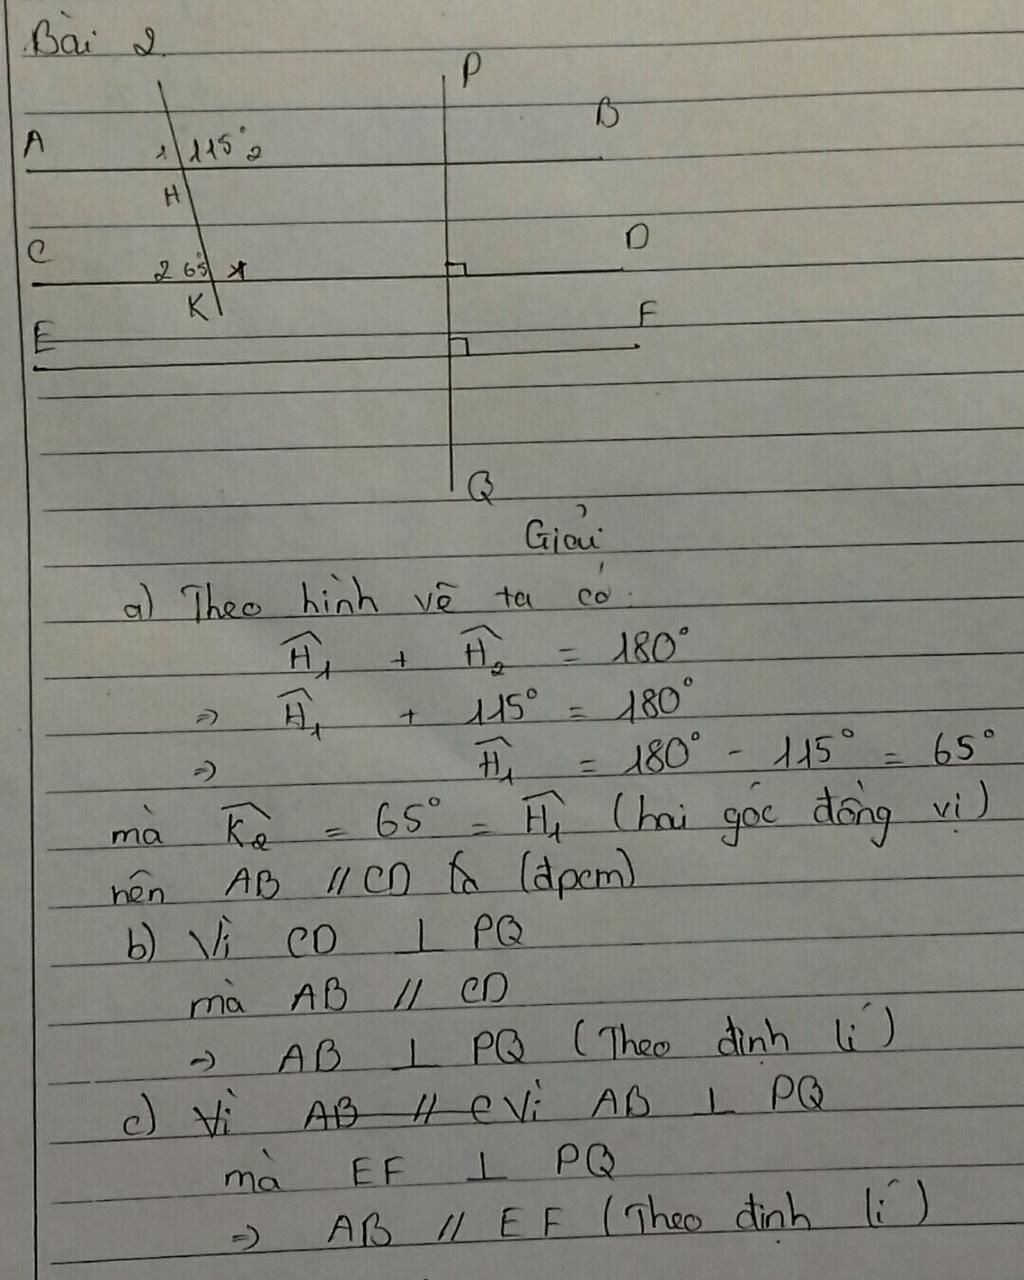 Bài 2
P
B
A
1 115° 2
H
C
D
2 65° 1
K
F
E
Q
Giải
a) Theo hình vẽ ta có:
Ĥ₁ + Ĥ₂ = 180°
=> Ĥ₁ + 115° = 180°
=> Ĥ₁ = 180° - 115° = 65°
mà K̂₂ = 65° = Ĥ₁ (hai góc đồng vị)
nên AB // CD (đpcm)
b) Vì CD ⊥ PQ
mà AB // CD
=> AB ⊥ PQ (Theo định lí)
c) Vì AB // C Vì AB ⊥ PQ
mà EF ⊥ PQ
=> AB // EF (Theo định lí)